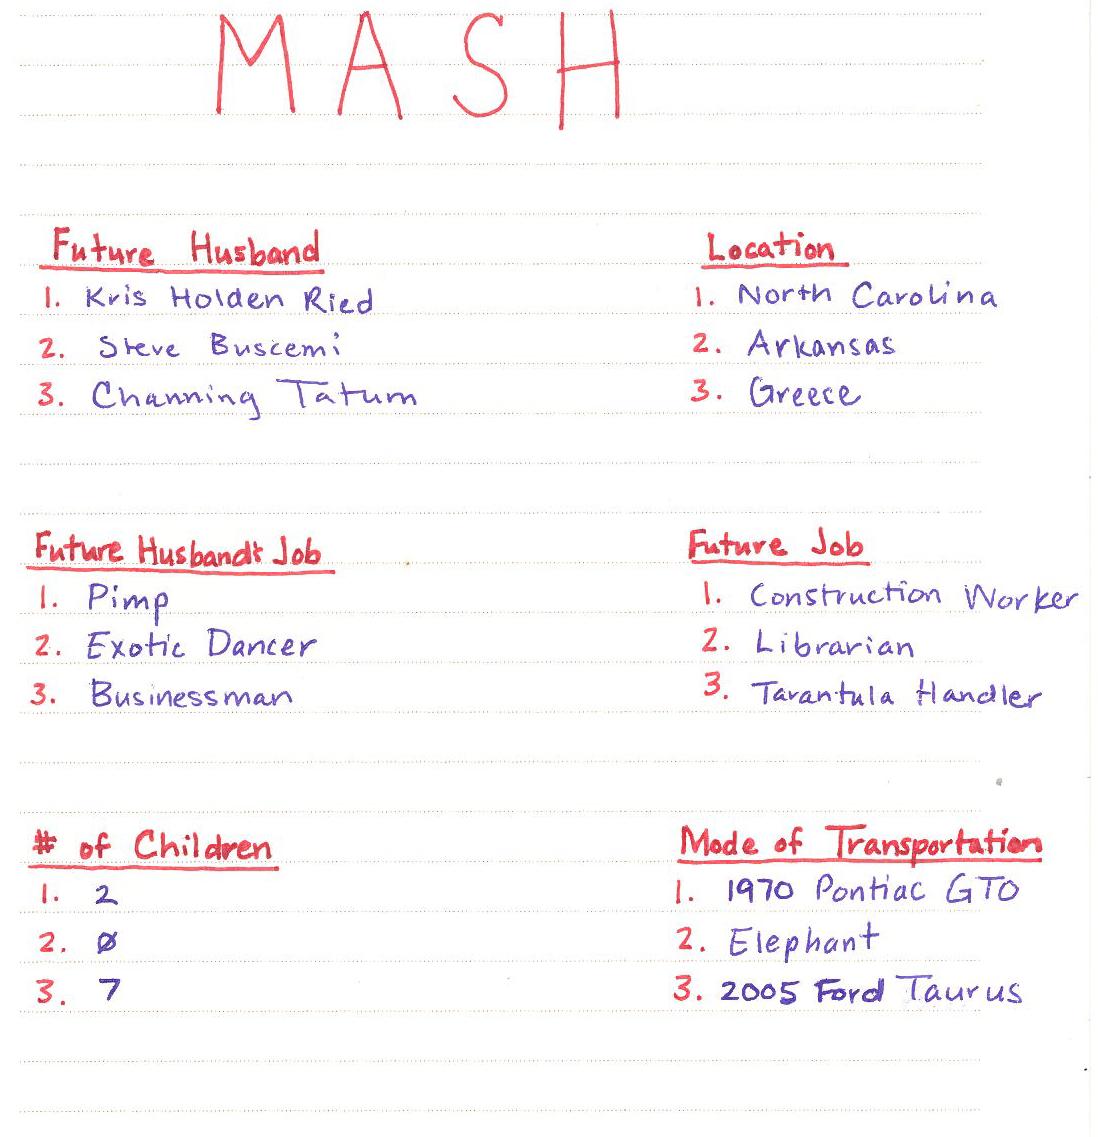 M A S H
Future Husband
1. Kris Holden Ried
2. Steve Buscemi
3. Channing Tatum
Location
1. North Carolina
2. Arkansas
3. Greece
Future Husband's Job
1. Pimp
2. Exotic Dancer
3. Businessman
Future Job
1. Construction Worker
2. Librarian
3. Tarantula Handler
# of Children
1. 2
2. Ø
3. 7
Mode of Transportation
1. 1970 Pontiac GTO
2. Elephant
3. 2005 Ford Taurus